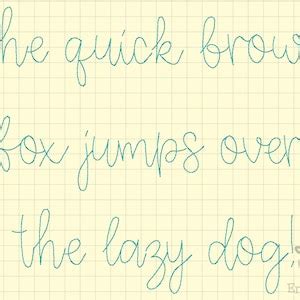 he quick brow
fox jumps over
the lazy dog!
Er